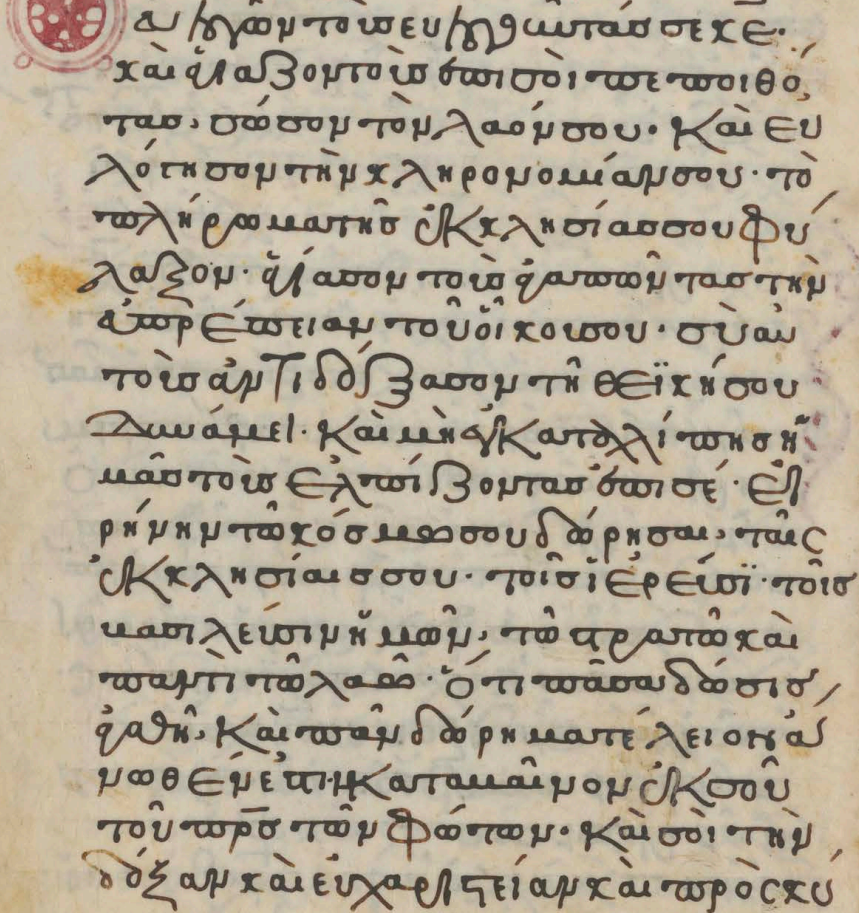 εὐλογῶν τοὺς εὐλογοῦντάς σε κ̅ε̅·
καὶ ἁγιάζον τοὺς ἐπὶ σοὶ πεποιθό
τας, σῶσον τὸν λαόν σου· καὶ εὐ
λόγησον τὴν κληρονομίαν σου· τὸ
πλήρωμα τῆς ἐκκλησίας σου φύ
λαξον· ἁγίασον τοὺς ἀγαπῶντας τὴν
εὐπρέπειαν τοῦ οἴκου σου· σὺ αὐ
τοὺς ἀντιδόξασον τῇ θεϊκῇ σου
δυνάμει· καὶ μὴ ἐγκαταλίπης ἡ
μᾶς τοὺς ἐλπίζοντας ἐπὶ σέ· εἰ
ρήνην τῶ κόσμω σου δώρησαι, ταῖς
ἐκκλησίαις σου· τοῖς ἱερεῦσϊ· τοῖς
βασιλεῦσιν ἡμῶν, τῶ στρατῶ καὶ
παντὶ τῶ λαῶ· ὅτι πᾶσα δώσις
ἀγαθὴ, καὶ πᾶν δώρημα τέλειον ἄ
νωθέν ἐστιν καταβαῖνον ἐκ σοῦ
τοῦ πρ̅ς τῶν φώτων· καὶ σοὶ τὴν
δόξαν καὶ εὐχαριστείαν καὶ προσκύ